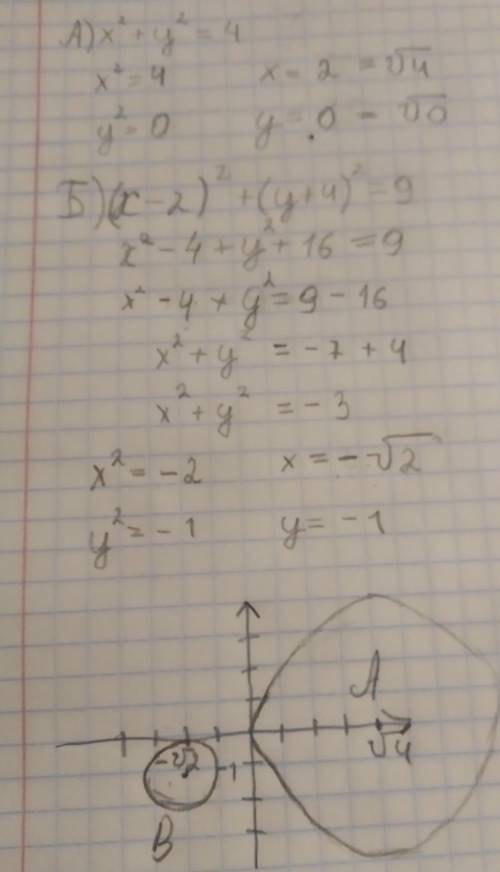 А) x² + y² = 4
x² = 4 x = 2 = √4
y² = 0 y = 0 = √0
Б) (x - 2)² + (y + 4)² = 9
x² - 4 + y² + 16 = 9
x² - 4 + y² = 9 - 16
x² + y² = -7 + 4
x² + y² = -3
x² = -2 x = -√2
y² = -1 y = -1
A
√4
-√2
-1
B